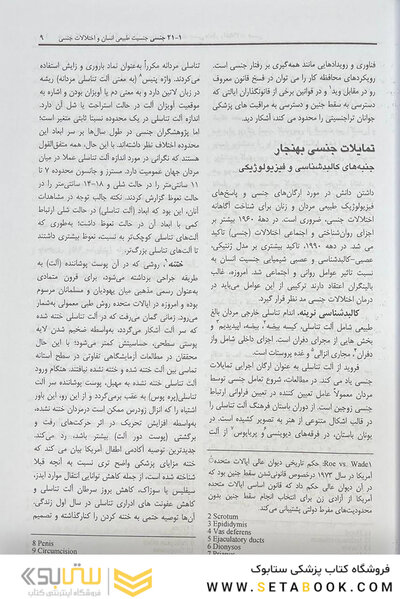 ۲۱-۱ جنسی جنسیت طبیعی انسان و اختلالات جنسی ۹
فناوری و رویدادهایی مانند همه‌گیری بر رفتار جنسی است.
رویکردهای محافظه کار را می توان در فسخ قانون معروف
رو در مقابل وید* و در قوانین برخی از قانونگذاران ایالتی که
دسترسی به سقط جنین و دسترسی به مراقبت های پزشکی
جوانان تراجنسیتی را محدود می کند، آشکار دید.
تمایلات جنسی بهنجار
جنبه‌های کالبدشناسی و فیزیولوژیکی
داشتن دانش در مورد ارگان‌های جنسی و پاسخ‌های
فیزیولوژیک طبیعی مردان و زنان برای شناخت آگاهانه
اختلالات جنسی، ضروری است. در دهۀ ۱۹۶۰ بیشتر بر
اجزای روان‌شناختی و اجتماعی اختلالات (جنسی) تأکید
می شد. در دهه ۱۹۹۰، تاکید بیشتری بر مدل ژنتیکی،
عصبی-کالبدشناسی و عصبی شیمیایی جنسیت انسان به
نسبت تاثیر عوامل روانی و اجتماعی شد. امروزه، غالب
بالینگران اعتقاد دارند ترکیبی از این عوامل می‌باید در
درمان اختلالات جنسی مد نظر قرار گیرد.
کالبدشناسی نرینه. اندام تناسلی خارجی مردان بالغ
طبیعی شامل آلت تناسلی، کیسه بیضه۲، بیضه، اپیدیدیم۳ و
بخش هایی از مجرای دفران است. اجزای داخلی شامل واز
دفران۴، مجاری انزالی۵ و غده پروستات است.
فروید از آلت تناسلی به عنوان ارگان اجرایی تمایلات
جنسی یاد می کند. در مطالعات، شروع تمایل جنسی توسط
مردان معمولاً عامل تعیین کننده در تعیین فراوانی ارتباط
جنسی زوجین است. از دوران باستان فرهنگ آلت تناسلی را
در قالب اشکال متنوعی از هنر به تصویر کشیده است. در
یونان باستان، در فرقه‌های دیونیسی و پریاپوس۷ از آلت
(Roe vs. Wade): حکم تاریخی دیوان عالی ایالات متحده
آمریکا در سال ۱۹۷۳ درخصوص قانونی‌شدن سقط جنین بود که
در آن دیوان عالی حکم داد که قانون اساسی ایالات متحده
آمریکا از آزادی زن برای انتخاب انجام سقط جنین بدون
محدودیت‌های مفرط دولتی پشتیبانی می‌کند
2 Scrotum
3 Epididymis
4 Vas deferens
5 Ejaculatory ducts
6 Dionysos
تناسلی مردانه مکرراً به‌عنوان نماد باروری و زایش استفاده
می‌کردند. واژه پنیس۸ (به معنی آلت تناسلی مردانه) ریشه
در زبان لاتین دارد و به معنی دم یا آویزان بودن و اشاره به
موقعیت آویزان آلت در حالت استراحت یا شل آن دارد.
اندازه آلت تناسلی در یک محدوده نسبتا ثابتی متغیر است؛
اما پژوهشگران جنسی در طول سال‌ها بر سر ابعاد این
محدوده اختلاف نظر داشته‌اند. با این حال، همه متفق‌القول
هستند که نگرانی در مورد اندازه آلت تناسلی عملا در میان
مردان جهان عمومیت دارد. مسترز و جانسون محدوده ۷ تا
۱۱ سانتی‌متر را در حالت شلی و ۱۴-۱۸ سانتی‌متر را در
حالت نعوظ گزارش کردند. نکته جالب توجه در مشاهدات
آنان، این بود که ابعاد آلت (تناسلی) در حالت شلی ارتباط
کمی با ابعاد آن در حالت نعوظ داشت؛ به‌طوری که
آلت‌های تناسلی کوچک‌تر به نسبت، نعوظ بیشتری داشتند
تا آلت‌های تناسلی بزرگ‌تر.
ختنه۹، روشی که در آن پوست پوشاننده (آلت) به
طریقه جراحی برداشته می‌شود، برای قرون متمادی
به‌عنوان رسمی مذهبی میان یهودیان و مسلمانان مرسوم
بوده و امروزه در ایالات متحده روش طبی معمولی به‌شمار
می‌رود. زمانی گمان می‌رفت که در آلت تناسلی ختنه شده
که سر آلت آشکار می‌گردد، به‌واسطه ضخیم شدن لایه
پوستی سطحی، حساسیتش کمتر می‌شود؛ با این حال
محققان در مطالعات آزمایشگاهی تفاوتی در سطح آستانه
تماسی بین آلت ختنه شده و ختنه نشده نیافتند. هنگام ورود
آلت تناسلی ختنه نشده به مهبل، پوست پوشاننده سر آلت
تناسلی(پره پوس) به عقب برمی‌گردد و از این رو، این باور
اشتباه را که انزال زودرس ممکن است درمردان ختنه نشده،
به‌واسطه افزایش تحریک در اثر حرکت‌های رفت و
برگشتی (پوست دور آلت) بیشتر باشد، رد می‌کند.
جدیدترین توصیه آکادمی اطفال آمریکا بیان می کند که
ختنه مزایای پزشکی واضح تری نسبت به آنچه قبلا
شناخته شده است، از جمله کاهش توانایی انتقال موارد ایدز،
سیفلیس یا سوزاک، کاهش بروز سرطان آلت تناسلی و
کاهش عفونت های ادراری تناسلی در سال اول زندگی.
آن‌ها توصیه حتمی به ختنه کردن را کنارگذاشته و تصمیم
8 Penis
9 Circumcision
فروشگاه کتاب پزشکی ستابوک
WWW.SETABOOK.COM
ستابوک
فروشگاه اینترنتی کتاب